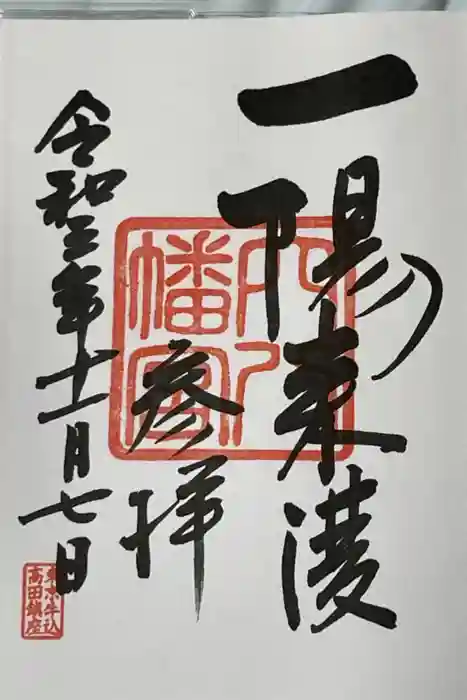 一陽来復
参拝
令和三年十一月七日
穴八幡宮
東京牛込
高田鎮座